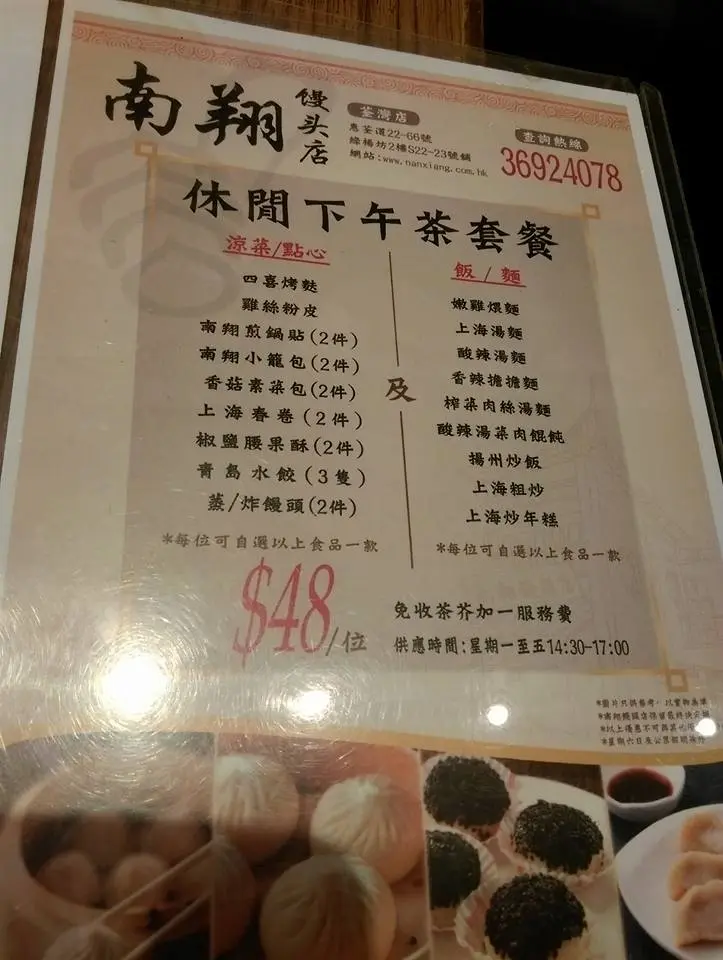 南翔
饅头店
荃灣店
惠荃道22-66號
綠楊坊2樓S22-23號舖
網站:www.nanxiang.com.hk
查詢熱線
36924078
休閒下午茶套餐
涼菜/點心
四喜烤麩
雞絲粉皮
南翔煎鍋貼(2件)
南翔小籠包(2件)
香菇素菜包(2件)
上海春卷(2件)
椒鹽腰果酥(2件)
青島水餃(3隻)
蒸/炸饅頭(2件)
*每位可自選以上食品一款
及
飯/麵
嫩雞煨麵
上海湯麵
酸辣湯麵
香辣擔擔麵
榨菜肉絲湯麵
酸辣湯菜肉餛飩
揚州炒飯
上海粗炒
上海炒年糕
*每位可自選以上食品一款
$48/位
免收茶芥加一服務費
供應時間:星期一至五14:30-17:00
*圖片只供參考,以實物為準
*南翔饅頭店保留最終決定權
*以上優惠不可與其他
*星期六日及公眾假期除外